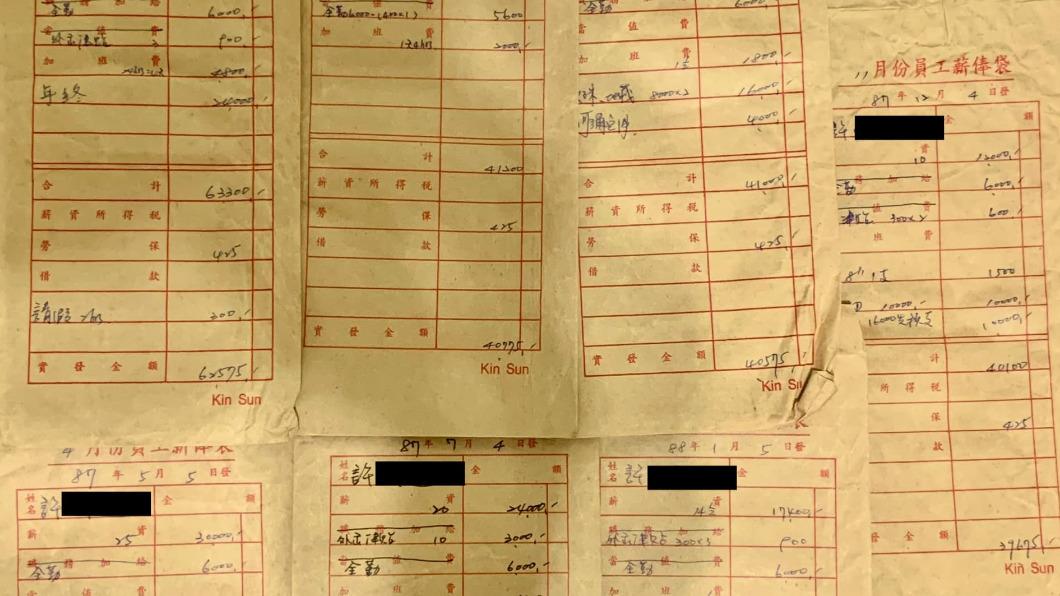 全勤 6000,-
外宿津貼 3 900,-
加班費
4800,-
年終 24000,-
合計 63300,-
薪資所得稅
勞保 425
借款
請假 2hrs 300,-
實發金額 62575,-
Kin Sun
5600
加班費
2000,-
合計 41200
薪資所得稅
勞保 425
借款
實發金額 40775,-
Kin Sun
全勤 6000,-
當值費
加班費 1800,-
8000×2 16000,-
4000,-
合計 41000,-
薪資所得稅
勞保 425,-
借款
實發金額 40575,-
Kin Su
11月份員工薪俸袋
87年12月4日發
許 金額
費 10 12000,-
全勤 6000,-
津貼 300×2 600,-
班費
1500
10000,- 10000,-
10000,-
計 40100
所得稅
保 425
款
發金額 39675,-
Kin Sun
4月份員工薪俸袋
87年5月5日發
姓名 許 金額
薪資 25 30000,-
全勤 6000,-
87年7月4日發
姓名 許 金額
薪資 20 24000,-
外宿津貼 10 3000,-
全勤 6000,-
88年1月5日發
姓名 許 金額
薪資 17400,-
外宿津貼 300×3 900
全勤 6000,-